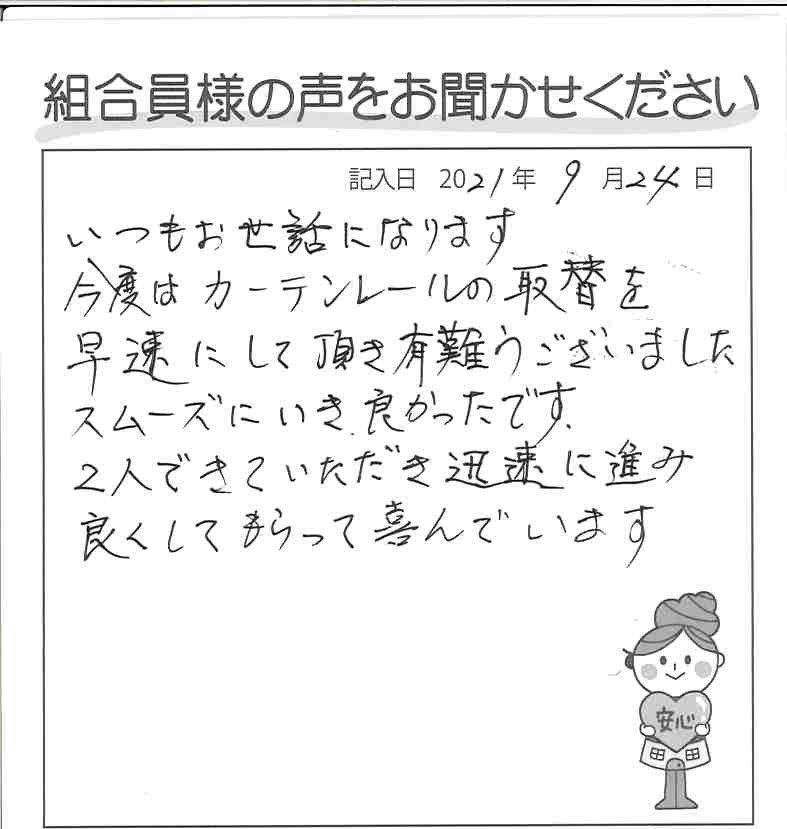 組合員様の声をお聞かせください
記入日 2021年 9月24日
いつもお世話になります
今度は カーテンレールの 取替を
早速にして頂き有難うございました
スムーズにいき、良かったです。
2人できていただき迅速に進み
良くしてもらって喜んでいます
安心